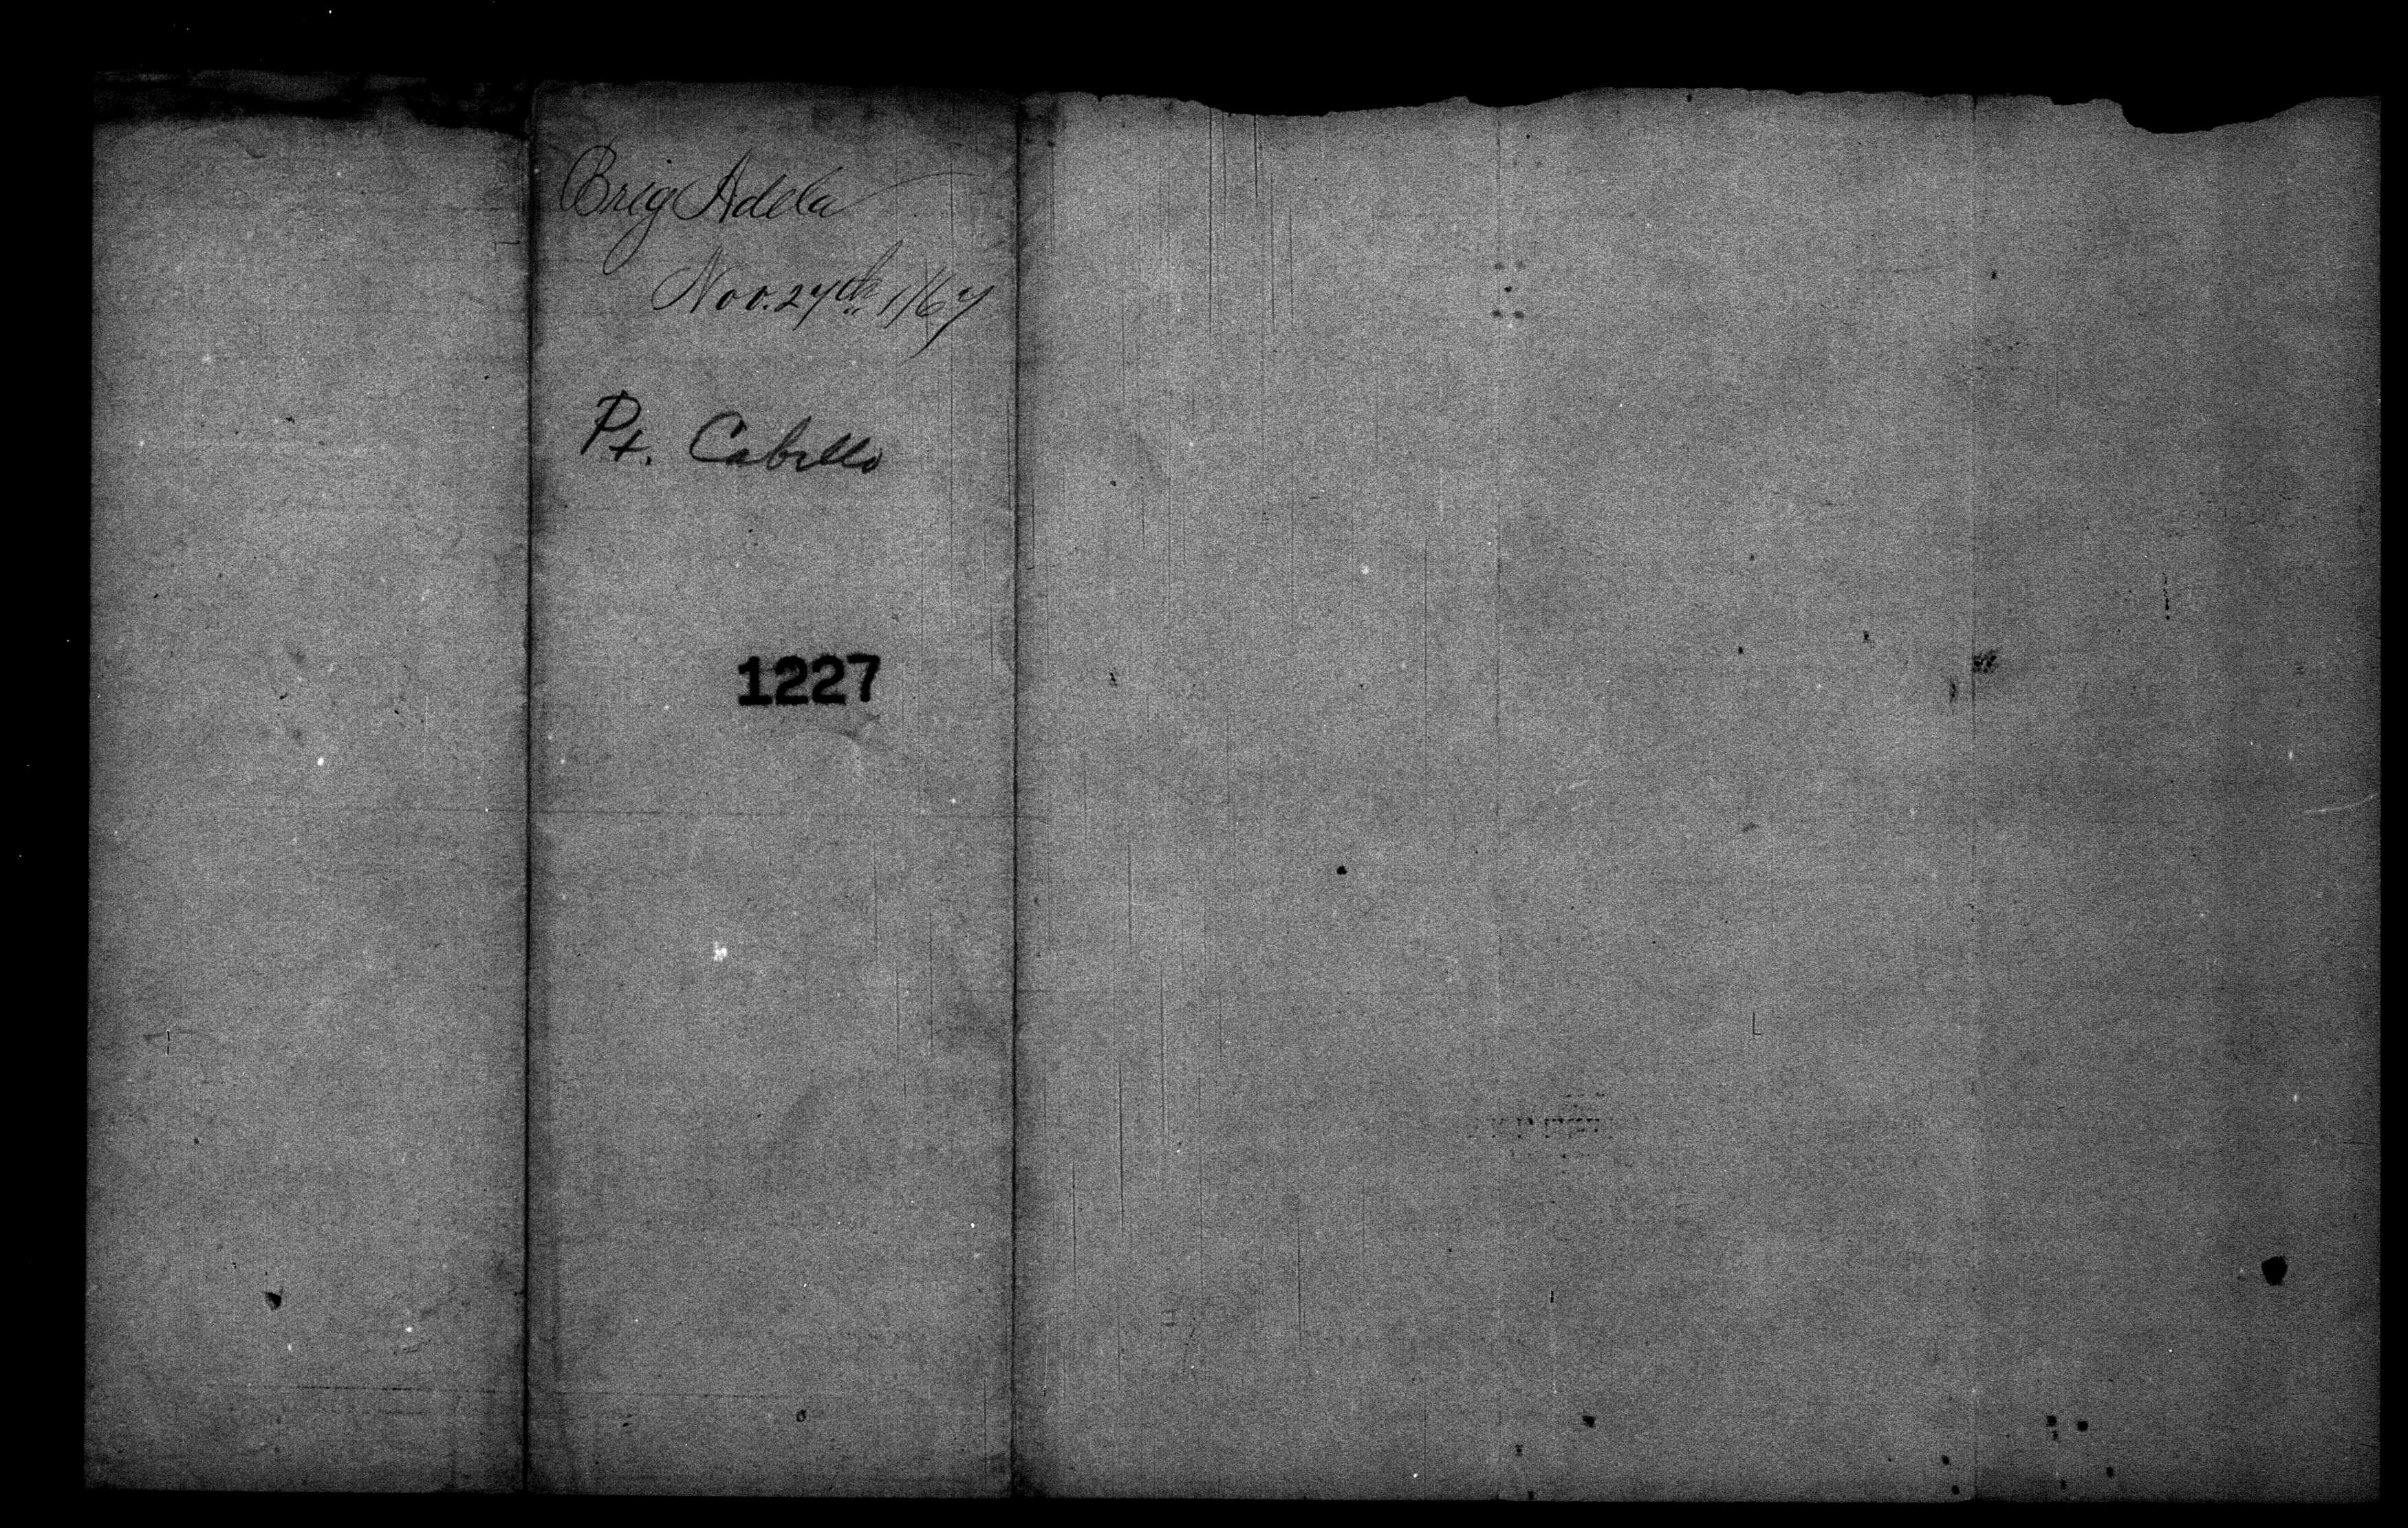 Brig Adela
Nov. 27th 1867
Pt. Cabello
1227